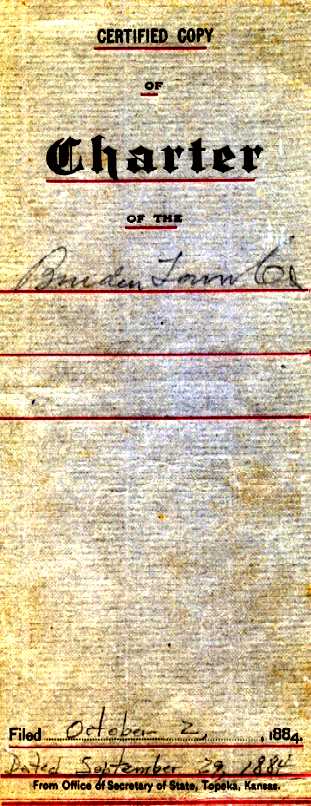 CERTIFIED COPY
OF
Charter
OF THE
Town Co
Filed October 2, , 1884.
Dated September 29, 1884
From Office of Secretary of State, Topeka, Kansas.